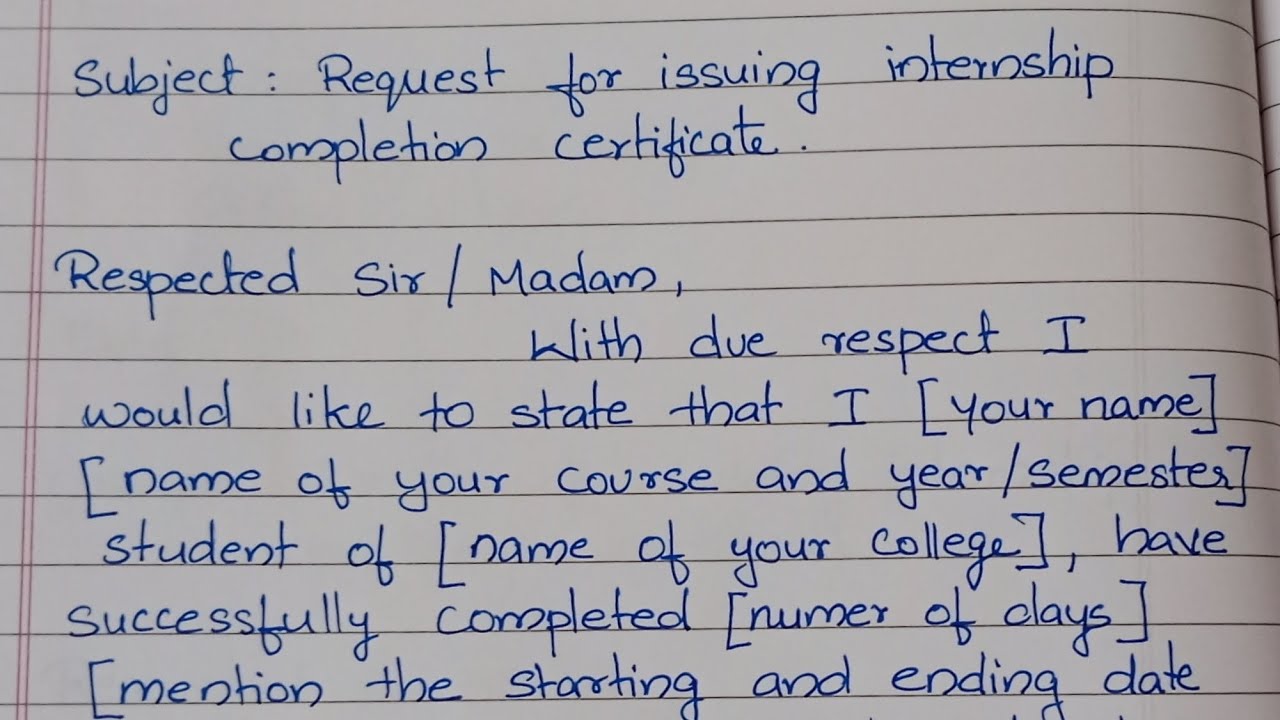 Subject: Request for issuing internship
completion certificate.
Respected Sir/Madam,
With due respect I
would like to state that I [your name]
[name of your course and year/semester]
student of [name of your college], have
successfully completed [numer of days]
[mention the starting and ending date